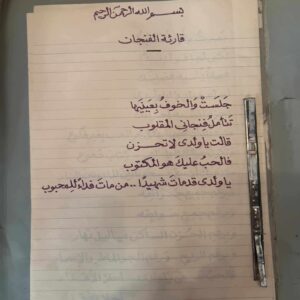 بسم الله الرحمن الرحيم
قارئة الفنجان
جَلَسَتْ وَالخوفُ بِعَينَيها
تتأملُ فِنجاني المقلوب
قالت يا ولدى لا تحزن
فالحبُ عليكَ هو المكتوب
يا ولدى قد مات شهيدًا .. من مات فداءً للمحبوب